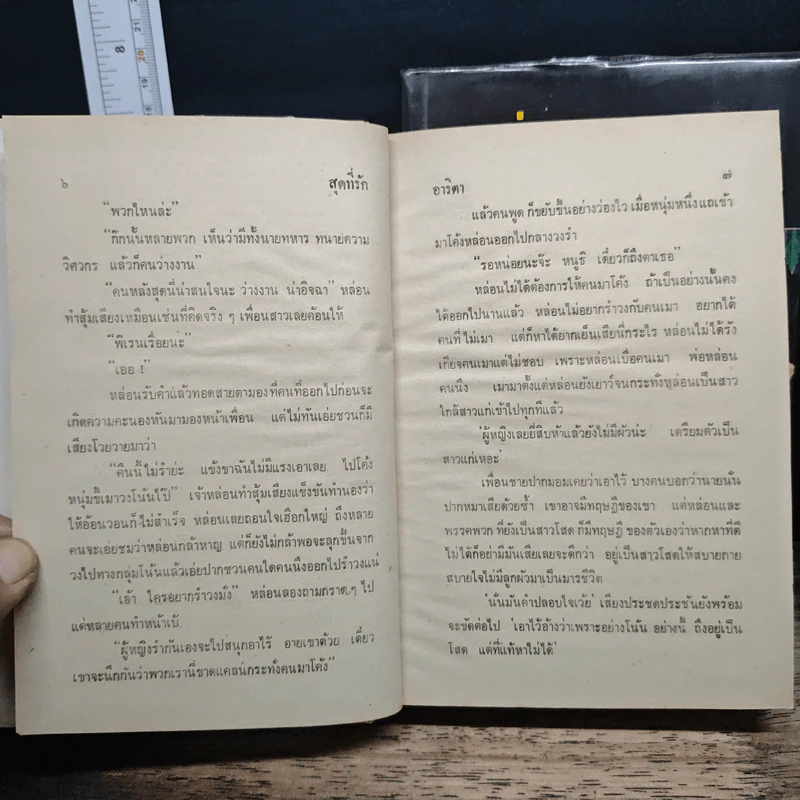 8
๖
สุดที่รัก
"พวกไหนล่ะ"
"ก๊กนั้นหลายพวก เห็นว่ามีทั้งนายทหาร ทนายความ
วิศวกร แล้วก็คนว่างงาน"
"คนหลังสุดนี่น่าสนใจนะ ว่างงาน น่าอิจฉา" หล่อน
ทำสุ้มเสียงเหมือนเช่นที่คิดจริง ๆ เพื่อนสาวเลยค้อนให้
"พิเรนเรื่อยน่ะ"
"เออ !"
หล่อนรับคำแล้วทอดสายตามองที่คนที่ออกไปก่อนจะ
เกิดความคะนองหันมามองหน้าเพื่อน แต่ไม่ทันเอ่ยชวนก็มี
เสียงโวยวายมาว่า
"คืนนี้ไม่รำย่ะ แข้งขาฉันไม่มีแรงเอาเลย ไปโค้ง
หนุ่มขี้เมาวงโน้นไป๊" เจ้าหล่อนทำสุ้มเสียงแข็งขันทำนองว่า
ให้อ้อนวอนก็ไม่สำเร็จ หล่อนเลยถอนใจเฮือกใหญ่ ถึงหลาย
คนจะเอ่ยชมว่าหล่อนกล้าหาญ แต่ก็ยังไม่กล้าพอจะลุกขึ้นจาก
วงไปทางกลุ่มโน้นแล้วเอ่ยปากชวนคนใดคนนึงออกไปรำวงแน่
"เอ้า ใครอยากรำวงมั่ง" หล่อนลองถามกราด ๆ ไป
แต่หลายคนทำหน้าเบ้
"ผู้หญิงรำกันเองจะไปสนุกอาไร้ อายเขาด้วย เดี๋ยว
เขาจะนึกกันว่าพวกเรานี่ขาดแคลนกระทั่งคนมาโค้ง"
อาริตา
๗
แล้วคนพูด ก็ขยับขึ้นอย่างว่องไว เมื่อหนุ่มหนึ่งแถเข้า
มาโค้งหล่อนออกไปกลางวงรำ
"รอหน่อยนะจ๊ะ หนูธิ เดี๋ยวก็ถึงตาเธอ"
หล่อนไม่ได้ต้องการให้คนมาโค้ง ถ้าเป็นอย่างนั้นคง
ได้ออกไปนานแล้ว หล่อนไม่อยากรำวงกับคนเมา อยากได้
คนที่ไม่เมา แต่ก็หาได้ยากเย็นเสียนี่กระไร หล่อนไม่ได้รัง
เกียจคนเมาแต่ไม่ชอบ เพราะหล่อนเบื่อคนเมา พ่อหล่อน
คนนึง เมามาตั้งแต่หล่อนยังเยาว์จนกระทั่งหล่อนเป็นสาว
ใกล้สาวแก่เข้าไปทุกทีแล้ว
'ผู้หญิงเลยยี่สิบห้าแล้วยังไม่มีผัวน่ะ เตรียมตัวเป็น
สาวแก่เหอะ'
เพื่อนชายปากมอมเคยว่าเอาไว้ บางคนบอกว่านายนั่น
ปากหมาเสียด้วยซ้ำ เขาอาจมีทฤษฎีของเขา แต่หล่อนและ
พรรคพวก ที่ยังเป็นสาวโสด ก็มีทฤษฎี ของตัวเองว่าหากหาที่ดี
ไม่ได้ก็อย่ามีมันเสียเลยจะดีกว่า อยู่เป็นสาวโสดให้สบายกาย
สบายใจไม่มีลูกผัวมาเป็นมารชีวิต
'นั่นมันคำปลอบใจเว้ย' เสียงประชดประชันยังพร้อม
จะขัดต่อไป 'เอาไว้อ้างว่าเพราะอย่างโน้น อย่างนี้ ถึงอยู่เป็น
โสด แต่ที่แท้หาไม่ได้'